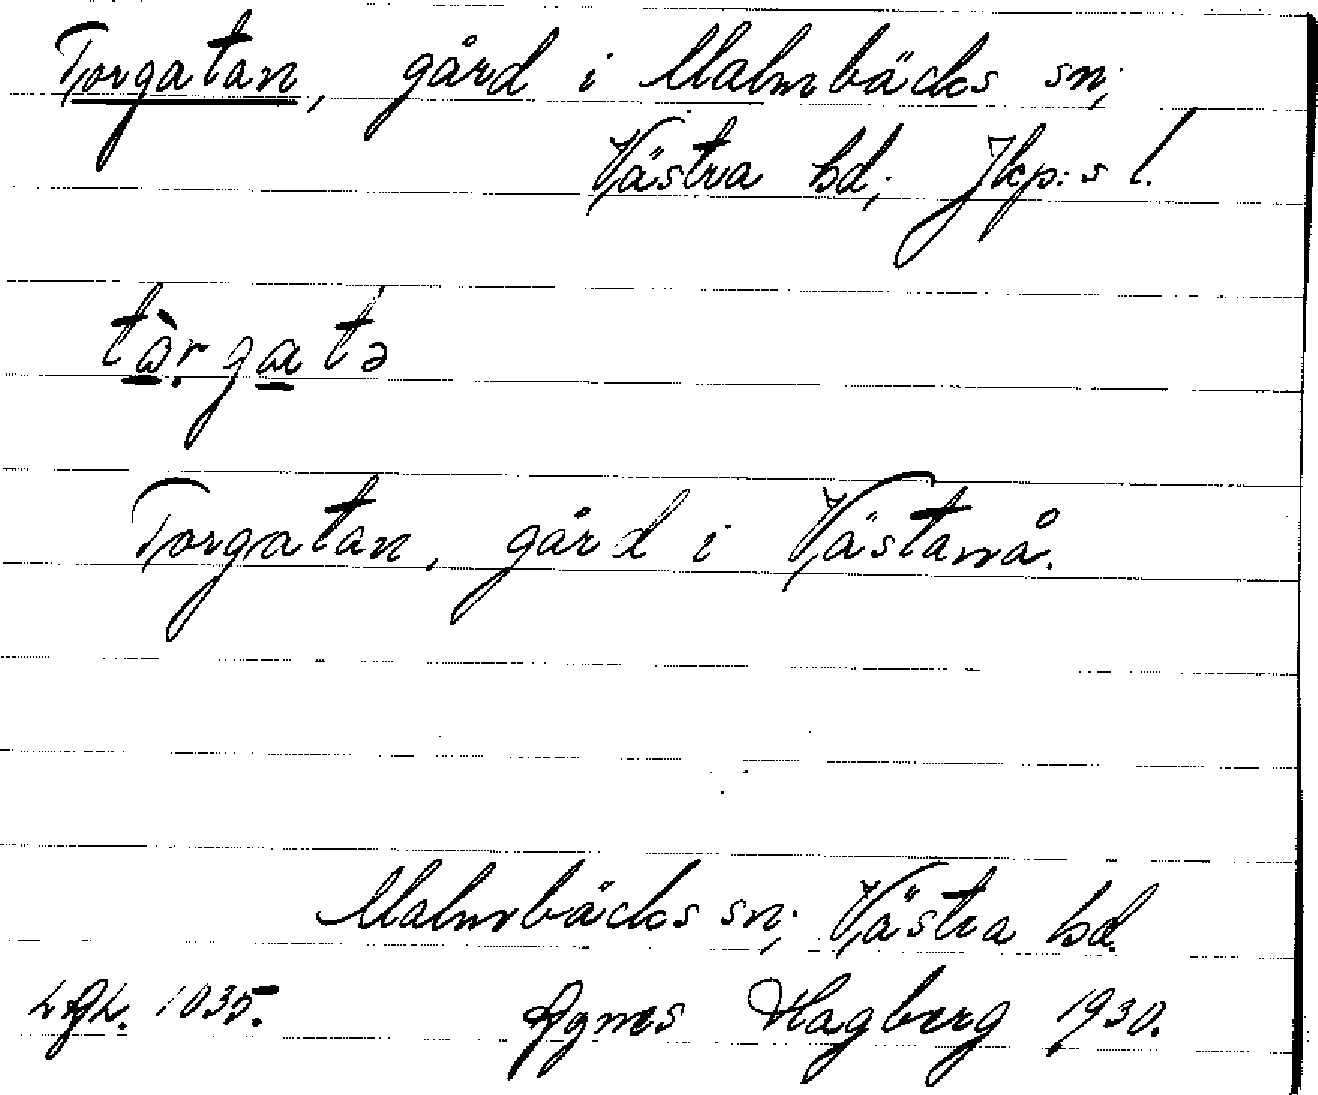 Torgatan, gård i Malmbäcks sn;
Västra hd; Jkp:s l.
tàrgatə
Torgatan, gård i Västanå.
Malmbäcks sn; Västra hd.
1035. Agnes Hagberg 1930.